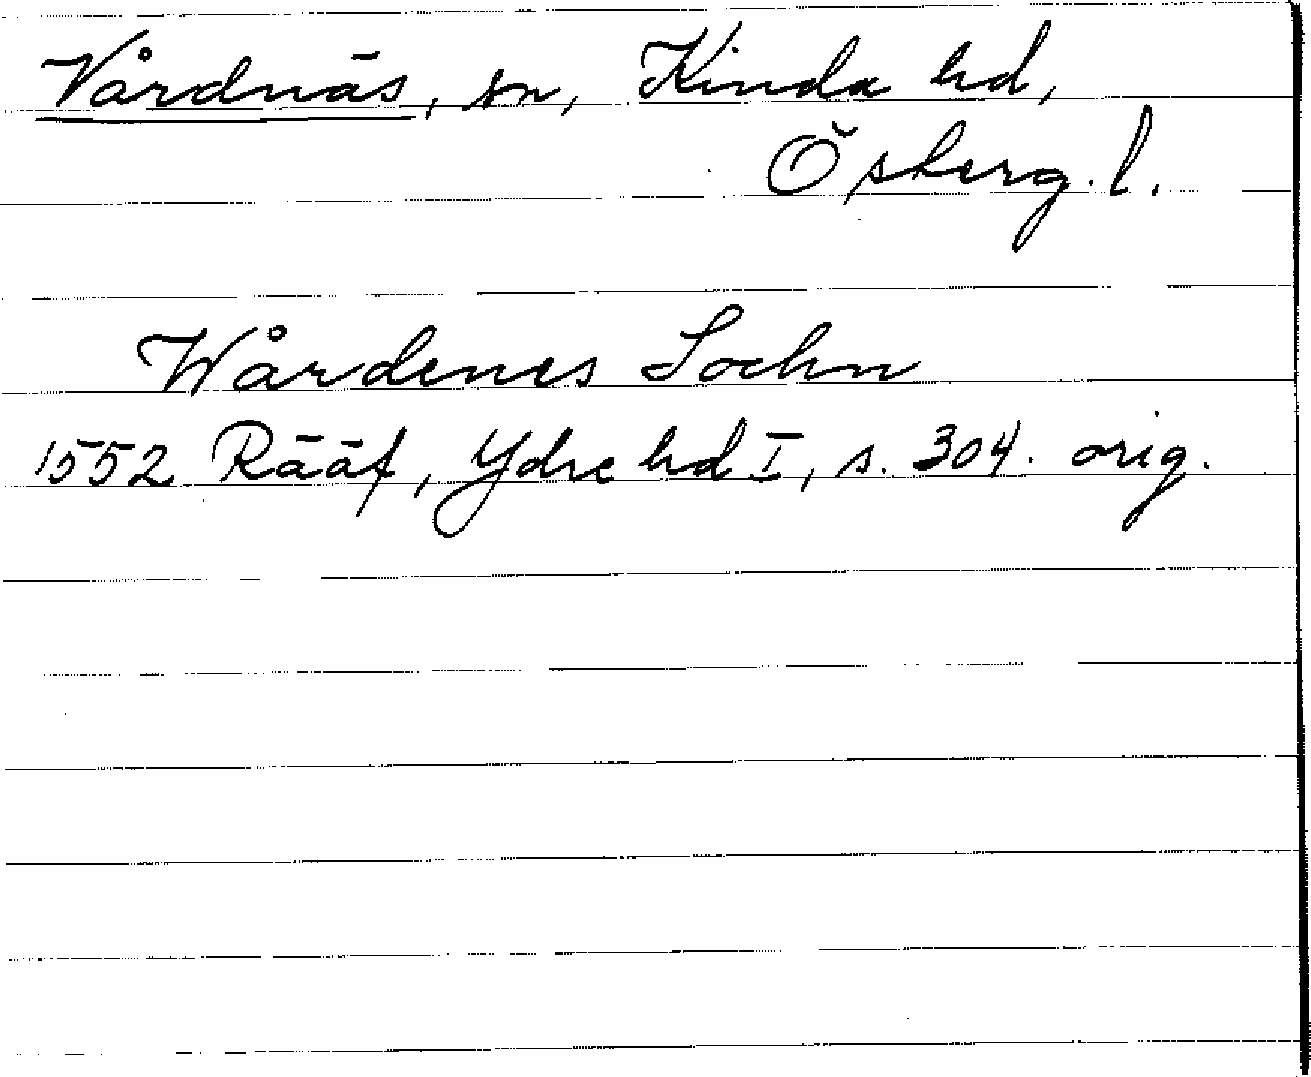 Vårdnäs, sn, Kinda hd,
Österg. l.
Wårdenes Sochn
1552 Rääf, Ydre hd I, s. 304. orig.